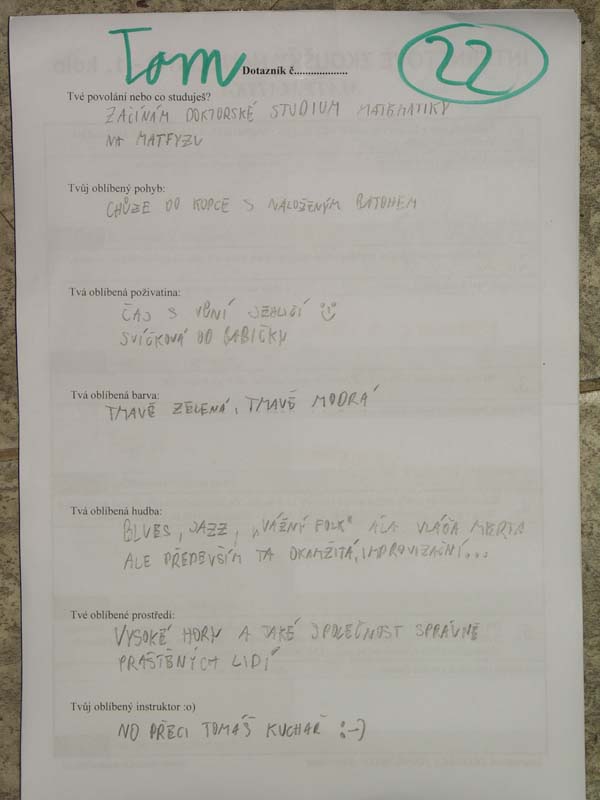 Tom
22
Dotazník č...................
Tvé povolání nebo co studuješ?
ZAČÍNÁM DOKTORSKÉ STUDIUM MATEMATIKY
NA MATFYZU
Tvůj oblíbený pohyb:
CHŮZE DO KOPCE S NALOŽENÝM BATOHEM
Tvá oblíbená poživatina:
ČAJ S VŮNÍ JEHLIČÍ
SVÍČKOVÁ OD BABIČKY
Tvá oblíbená barva:
TMAVĚ ZELENÁ, TMAVĚ MODRÁ
Tvá oblíbená hudba:
BLUES, JAZZ, „VÁŽNÝ FOLK" ALA VLÁĎA MERTA
ALE PŘEDEVŠÍM TA OKAMŽITÁ, IMPROVIZAČNÍ...
Tvé oblíbené prostředí:
VYSOKÉ HORY A TAKÉ SPOLEČNOST SPRÁVNĚ
PRAŠTĚNÝCH LIDÍ
Tvůj oblíbený instruktor :o)
NO PŘECI TOMÁŠ KUCHAŘ :-)